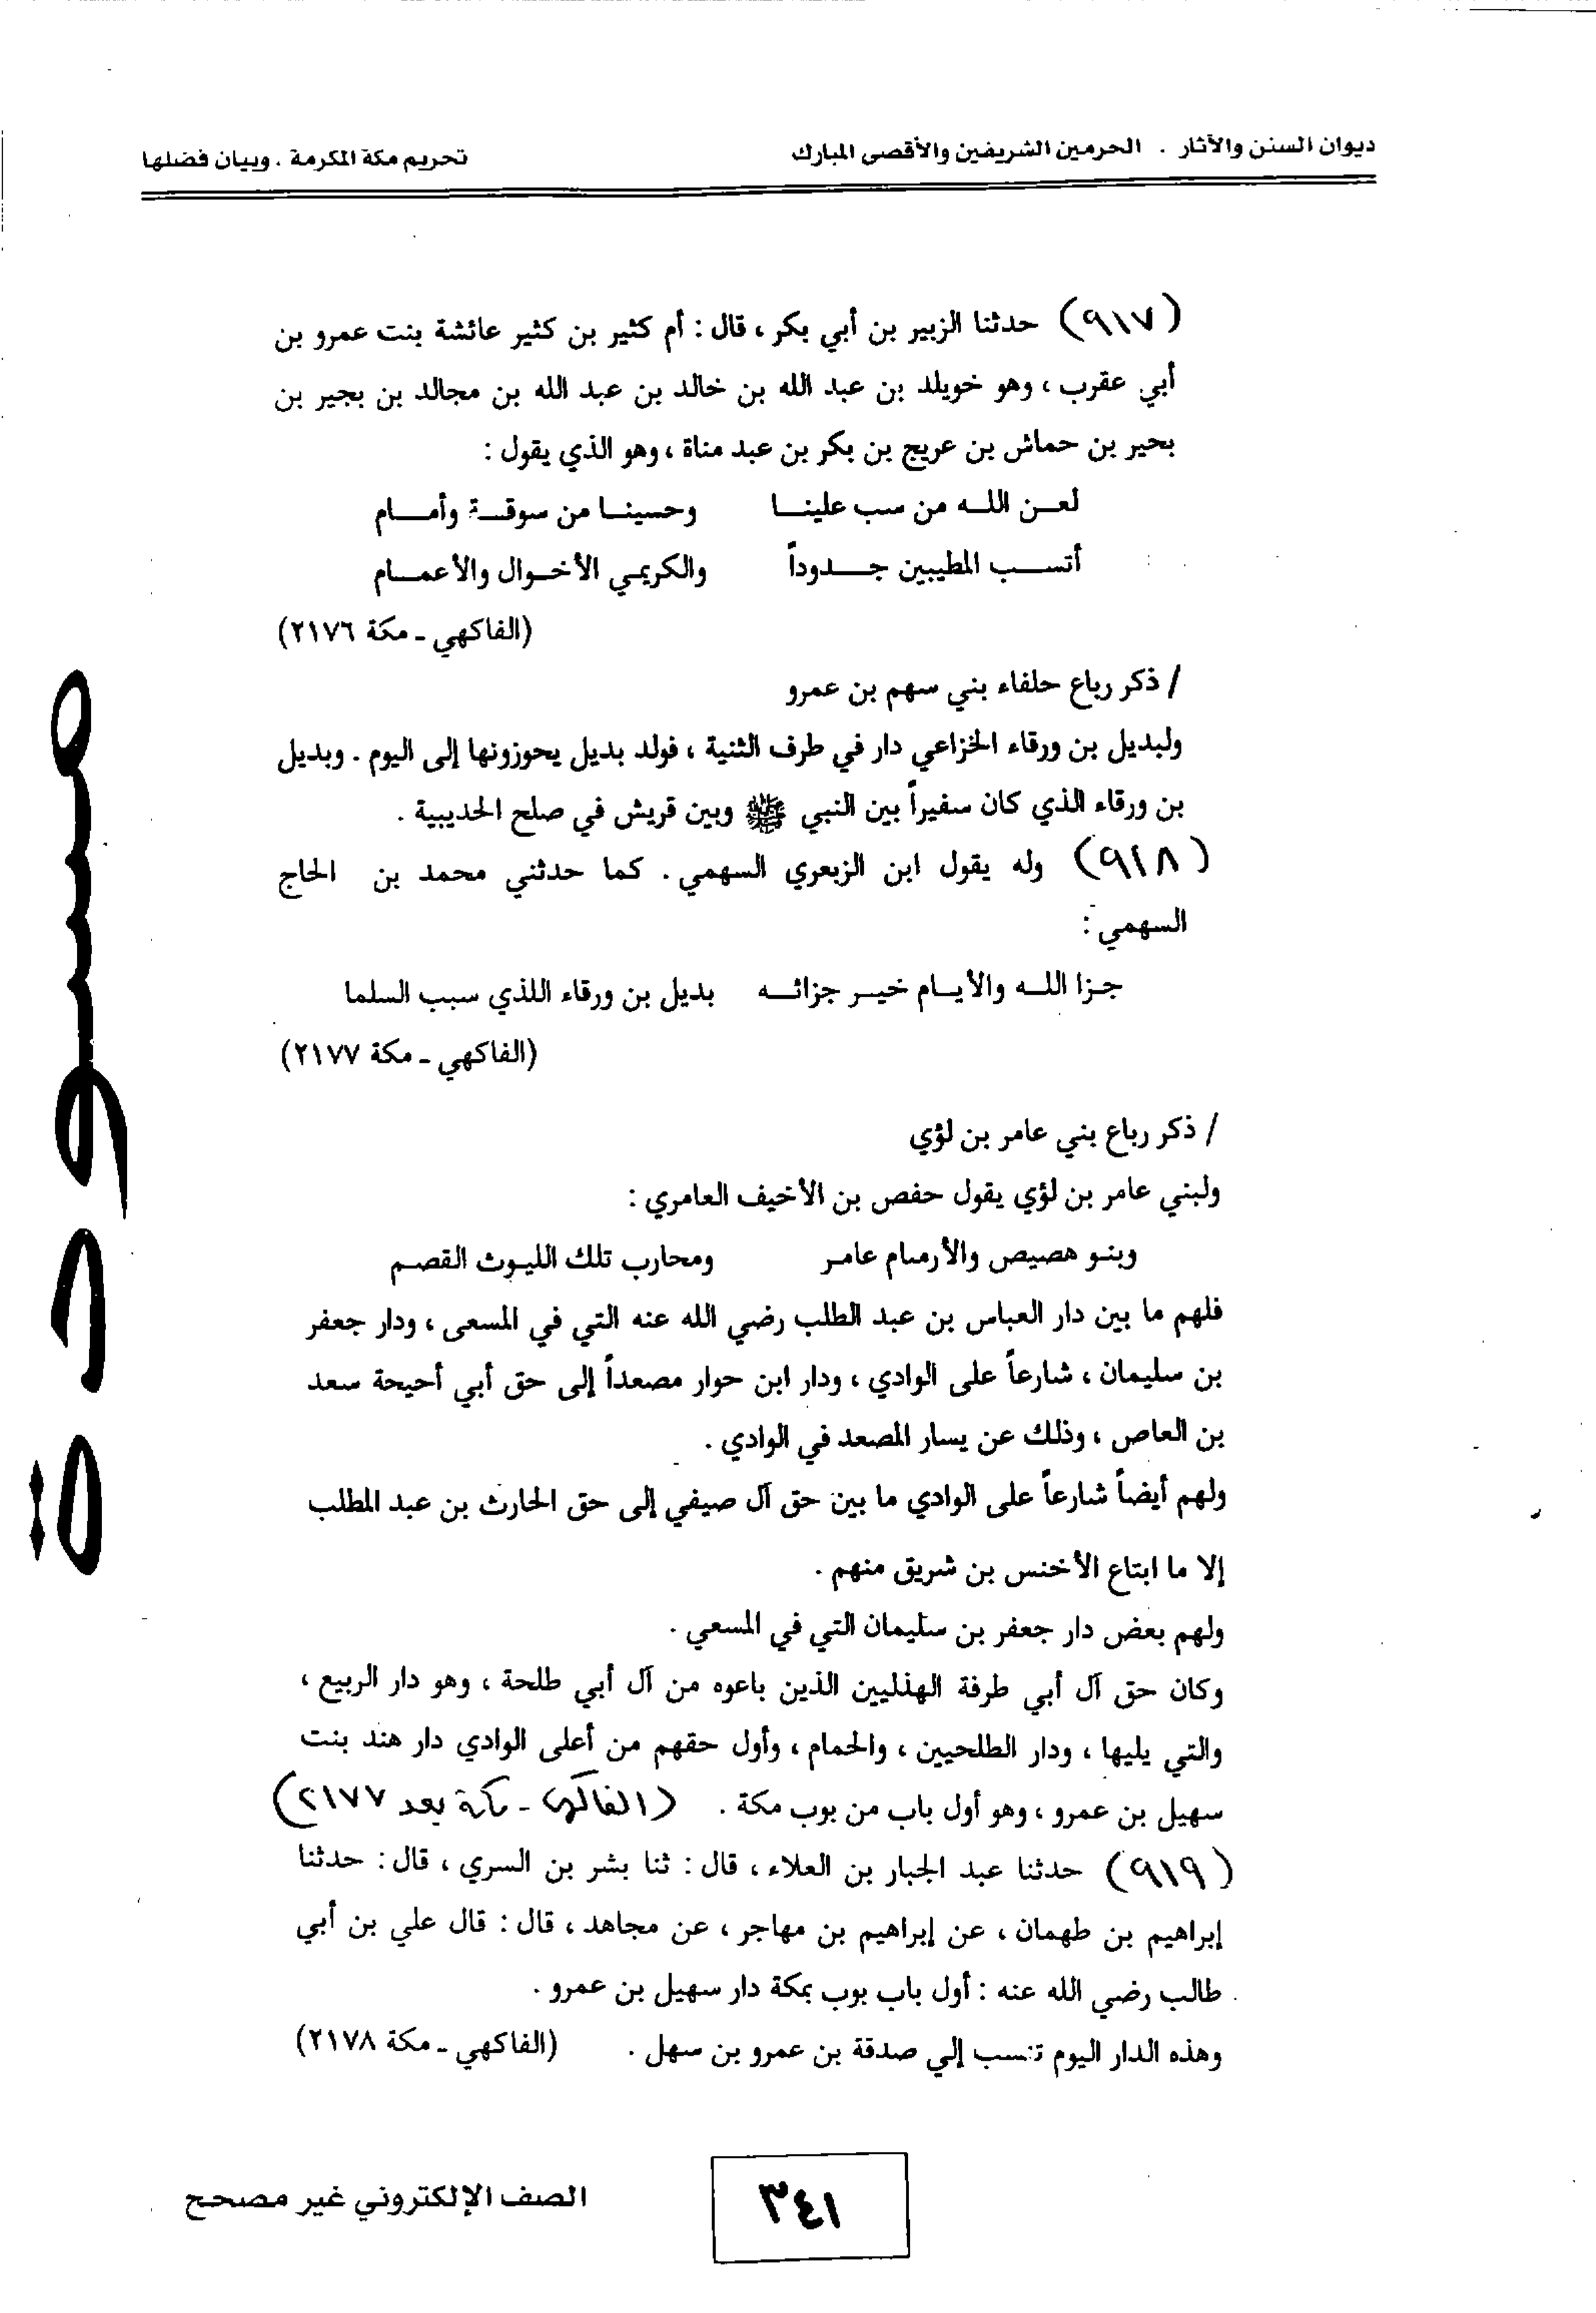 ديوان السنن والآثار . الحرمين الشريفين والأقصى المبارك
تحريم مكة المكرمة . وبيان فضلها
(٩١٧) حدثنا الزبير بن أبي بكر ، قال : أم كثير بن كثير عائشة بنت عمرو بن
أبي عقرب ، وهو خويلد بن عبد الله بن خالد بن عبد الله بن مجالد بن بجير بن
بحير بن حماش بن عريج بن بكر بن عبد مناة ، وهو الذي يقول :
لعـــن اللـــه من سب علينـــا وحسينـــا من سوقـــة وأمـــام
أتســـب المطيبين جـــدوداً والكريمي الأخـــوال والأعمـــام
(الفاكهي ـ مكة ٢١٧٦)
/ ذكر رباع حلفاء بني سهم بن عمرو
ولبديل بن ورقاء الخزاعي دار في طرف الثنية ، فولد بديل يحوزونها إلى اليوم . وبديل
بن ورقاء الذي كان سفيراً بين النبي ﷺ وبين قريش في صلح الحديبية .
(٩١٨) وله يقول ابن الزبعري السهمي . كما حدثني محمد بن الحاج
السهمي :
جـزا اللـــه والأيـــام خيـــر جزائـــه بديل بن ورقاء اللذي سبب السلما
(الفاكهي ـ مكة ٢١٧٧)
/ ذكر رباع بني عامر بن لؤي
ولبني عامر بن لؤي يقول حفص بن الأخيف العامري :
وبنـو هصيص والأرمىام عامـر ومحارب تلك الليـوث القصـم
فلهم ما بين دار العباس بن عبد الطلب رضي الله عنه التي في المسعى ، ودار جعفر
بن سليمان ، شارعاً على الوادي ، ودار ابن حوار مصعداً إلى حق أبي أحيحة سعد
بن العاص ، وذلك عن يسار المصعد في الوادي .
ولهم أيضاً شارعاً على الوادي ما بين حق آل صيفي إلى حق الحارث بن عبد المطلب
إلا ما ابتاع الأخنس بن شريق منهم .
ولهم بعض دار جعفر بن سليمان التي في المسعي .
وكان حق آل أبي طرفة الهذليين الذين باعوه من آل أبي طلحة ، وهو دار الربيع ،
والتي يليها ، ودار الطلحيين ، والحمام ، وأول حقهم من أعلى الوادي دار هند بنت
سهيل بن عمرو ، وهو أول باب من بوب مكة . (الفاكهي - مكة بعد ٢١٧٧)
(٩١٩) حدثنا عبد الجبار بن العلاء ، قال : ثنا بشر بن السري ، قال : حدثنا
إبراهيم بن طهمان ، عن إبراهيم بن مهاجر ، عن مجاهد ، قال : قال علي بن أبي
طالب رضي الله عنه : أول باب بوب بمكة دار سهيل بن عمرو .
وهذه الدار اليوم تنسب إلي صدقة بن عمرو بن سهل . (الفاكهي ـ مكة ٢١٧٨)
مسودة
٣٤١
الصف الإلكتروني غير مصحح